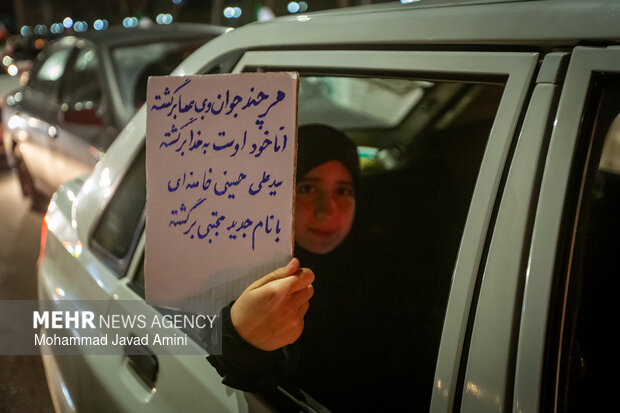 هرچند جوان و بی عصا برگشته
اما خود اوست به خدا برگشته
سید علی حسینی خامنه ای
با نام جدید مجتبی برگشته
MEHR NEWS AGENCY
Mohammad Javad Amini